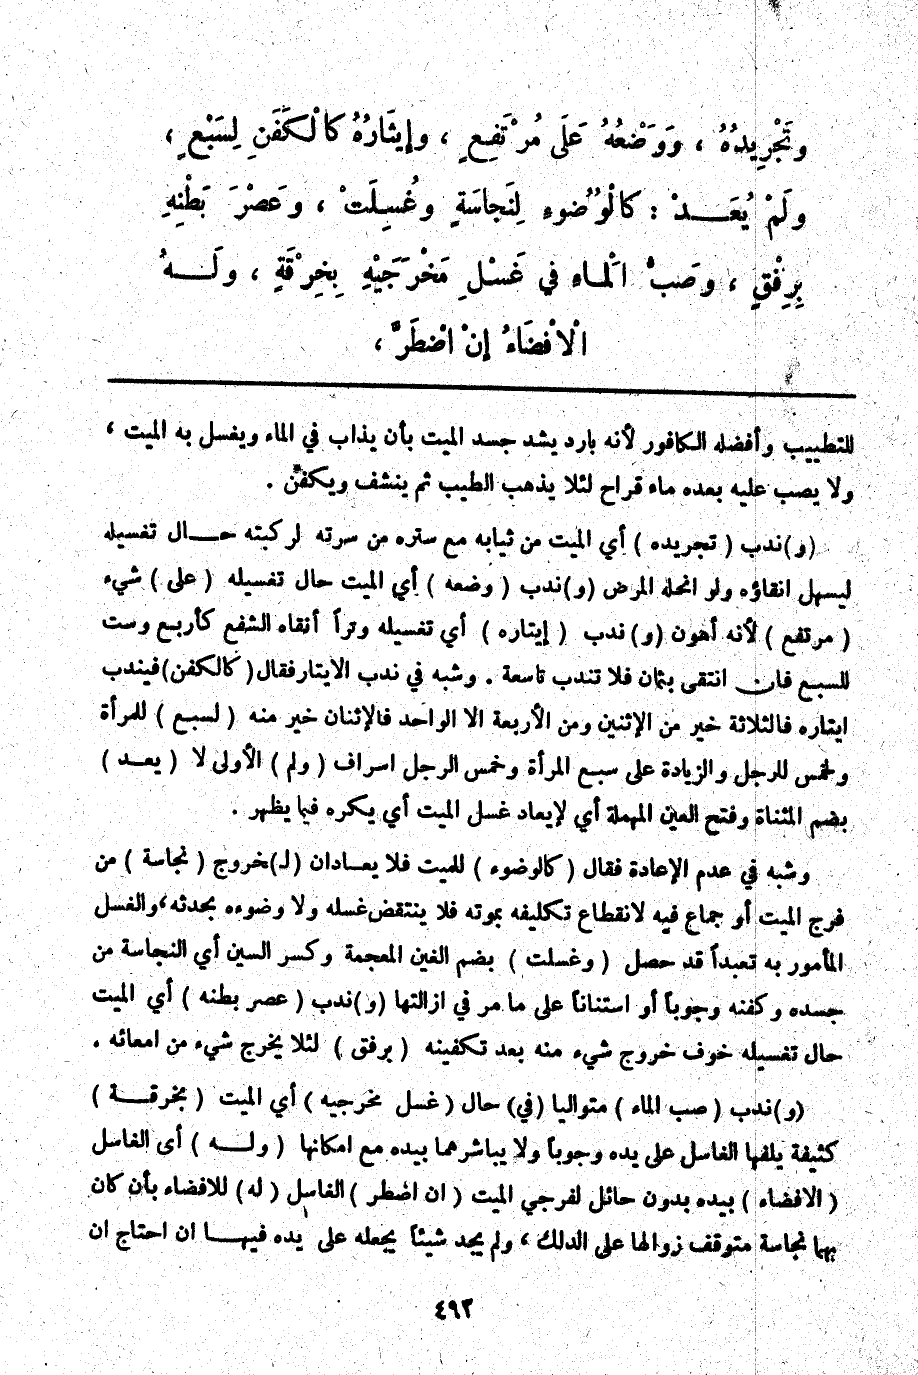 وتَجْرِيدُهُ ، وَوَضْعُهُ عَلَى مُرْتَفِعٍ ، وإِيثَارُهُ كَالْكَفَنِ لِسَبْعٍ ،
ولَمْ يُعَدْ : كَالْوُضوءِ لِنَجاسَةٍ وغُسِلَتْ ، وعَصْرَ بَطْنِهِ
بِرِفْقٍ ، وصَبُّ الْماءِ فِي غَسْلِ مَخْرَجَيْهِ بِخِرْقَةٍ ، ولَهُ
الْافْضَاءُ إِنْ اضْطَرَّ ،
للتطييب وأفضله الكافور لأنه بارد يشد جسد الميت بأن يذاب في الماء ويغسل به الميت ،
ولا يصب عليه بعده ماء قراح لئلا يذهب الطيب ثم ينشف ويكفن .
(و)ندب ( تجريده ) أي الميت من ثيابه مع ستره من سرته لركبته حال تغسيله
ليسهل انقاؤه ولو انحله المرض (و)ندب ( وضعه ) أي الميت حال تغسيله ( على ) شيء
( مرتفع ) لأنه أهون (و) ندب ( إيتاره ) أي تغسيله وتراً أنقاه الشفع كأربع وست
للسبع فان انتقى بثمان فلا تندب تاسعة . وشبه في ندب الايتار فقال( كالكفن)فيندب
ايتاره فالثلاثة خير من الإثنين ومن الأربعة الا الواحد فالإثنان خير منه ( لسبع ) للمرأة
ولخمس للرجل والزيادة على سبع المرأة وخمس الرجل اسراف ( ولم ) الأولى لا ( يعد )
بضم المثناة وفتح العين المهملة أي لايعاد غسل الميت أي يكره فيما يظهر .
وشبه في عدم الإعادة فقال ( كالوضوء ) للميت فلا يعادان (لـ)خروج ( نجاسة ) من
فرج الميت أو جماع فيه لانقطاع تكليفه بموته فلا ينتقض غسله ولا وضوءه بحدثه،والغسل
المأمور به تعبداً قد حصل ( وغسلت ) بضم الغين المعجمة وكسر السين أي النجاسة من
جسده وكفنه وجوباً أو استناناً على ما مر في ازالتها (و)ندب ( عصر بطنه ) أي الميت
حال تغسيله خوف خروج شيء منه بعد تكفينه ( برفق ) لئلا يخرج شيء من امعائه .
(و)ندب ( صب الماء ) متواليا (في) حال ( غسل مخرجيه ) أي الميت ( بخرقة )
كثيفة يلفها الغاسل على يده وجوباً ولا يباشرهما بيده مع امكانها ( وله ) أى الغاسل
( الافضاء ) بيده بدون حائل لفرجي الميت ( ان اضطر ) الغاسل ( له) للافضاء بأن كان
بهما نجاسة متوقف زوالها على الدلك ، ولم يجد شيئاً يجعله على يده فيهـا ان احتاج ان
٤٩٣